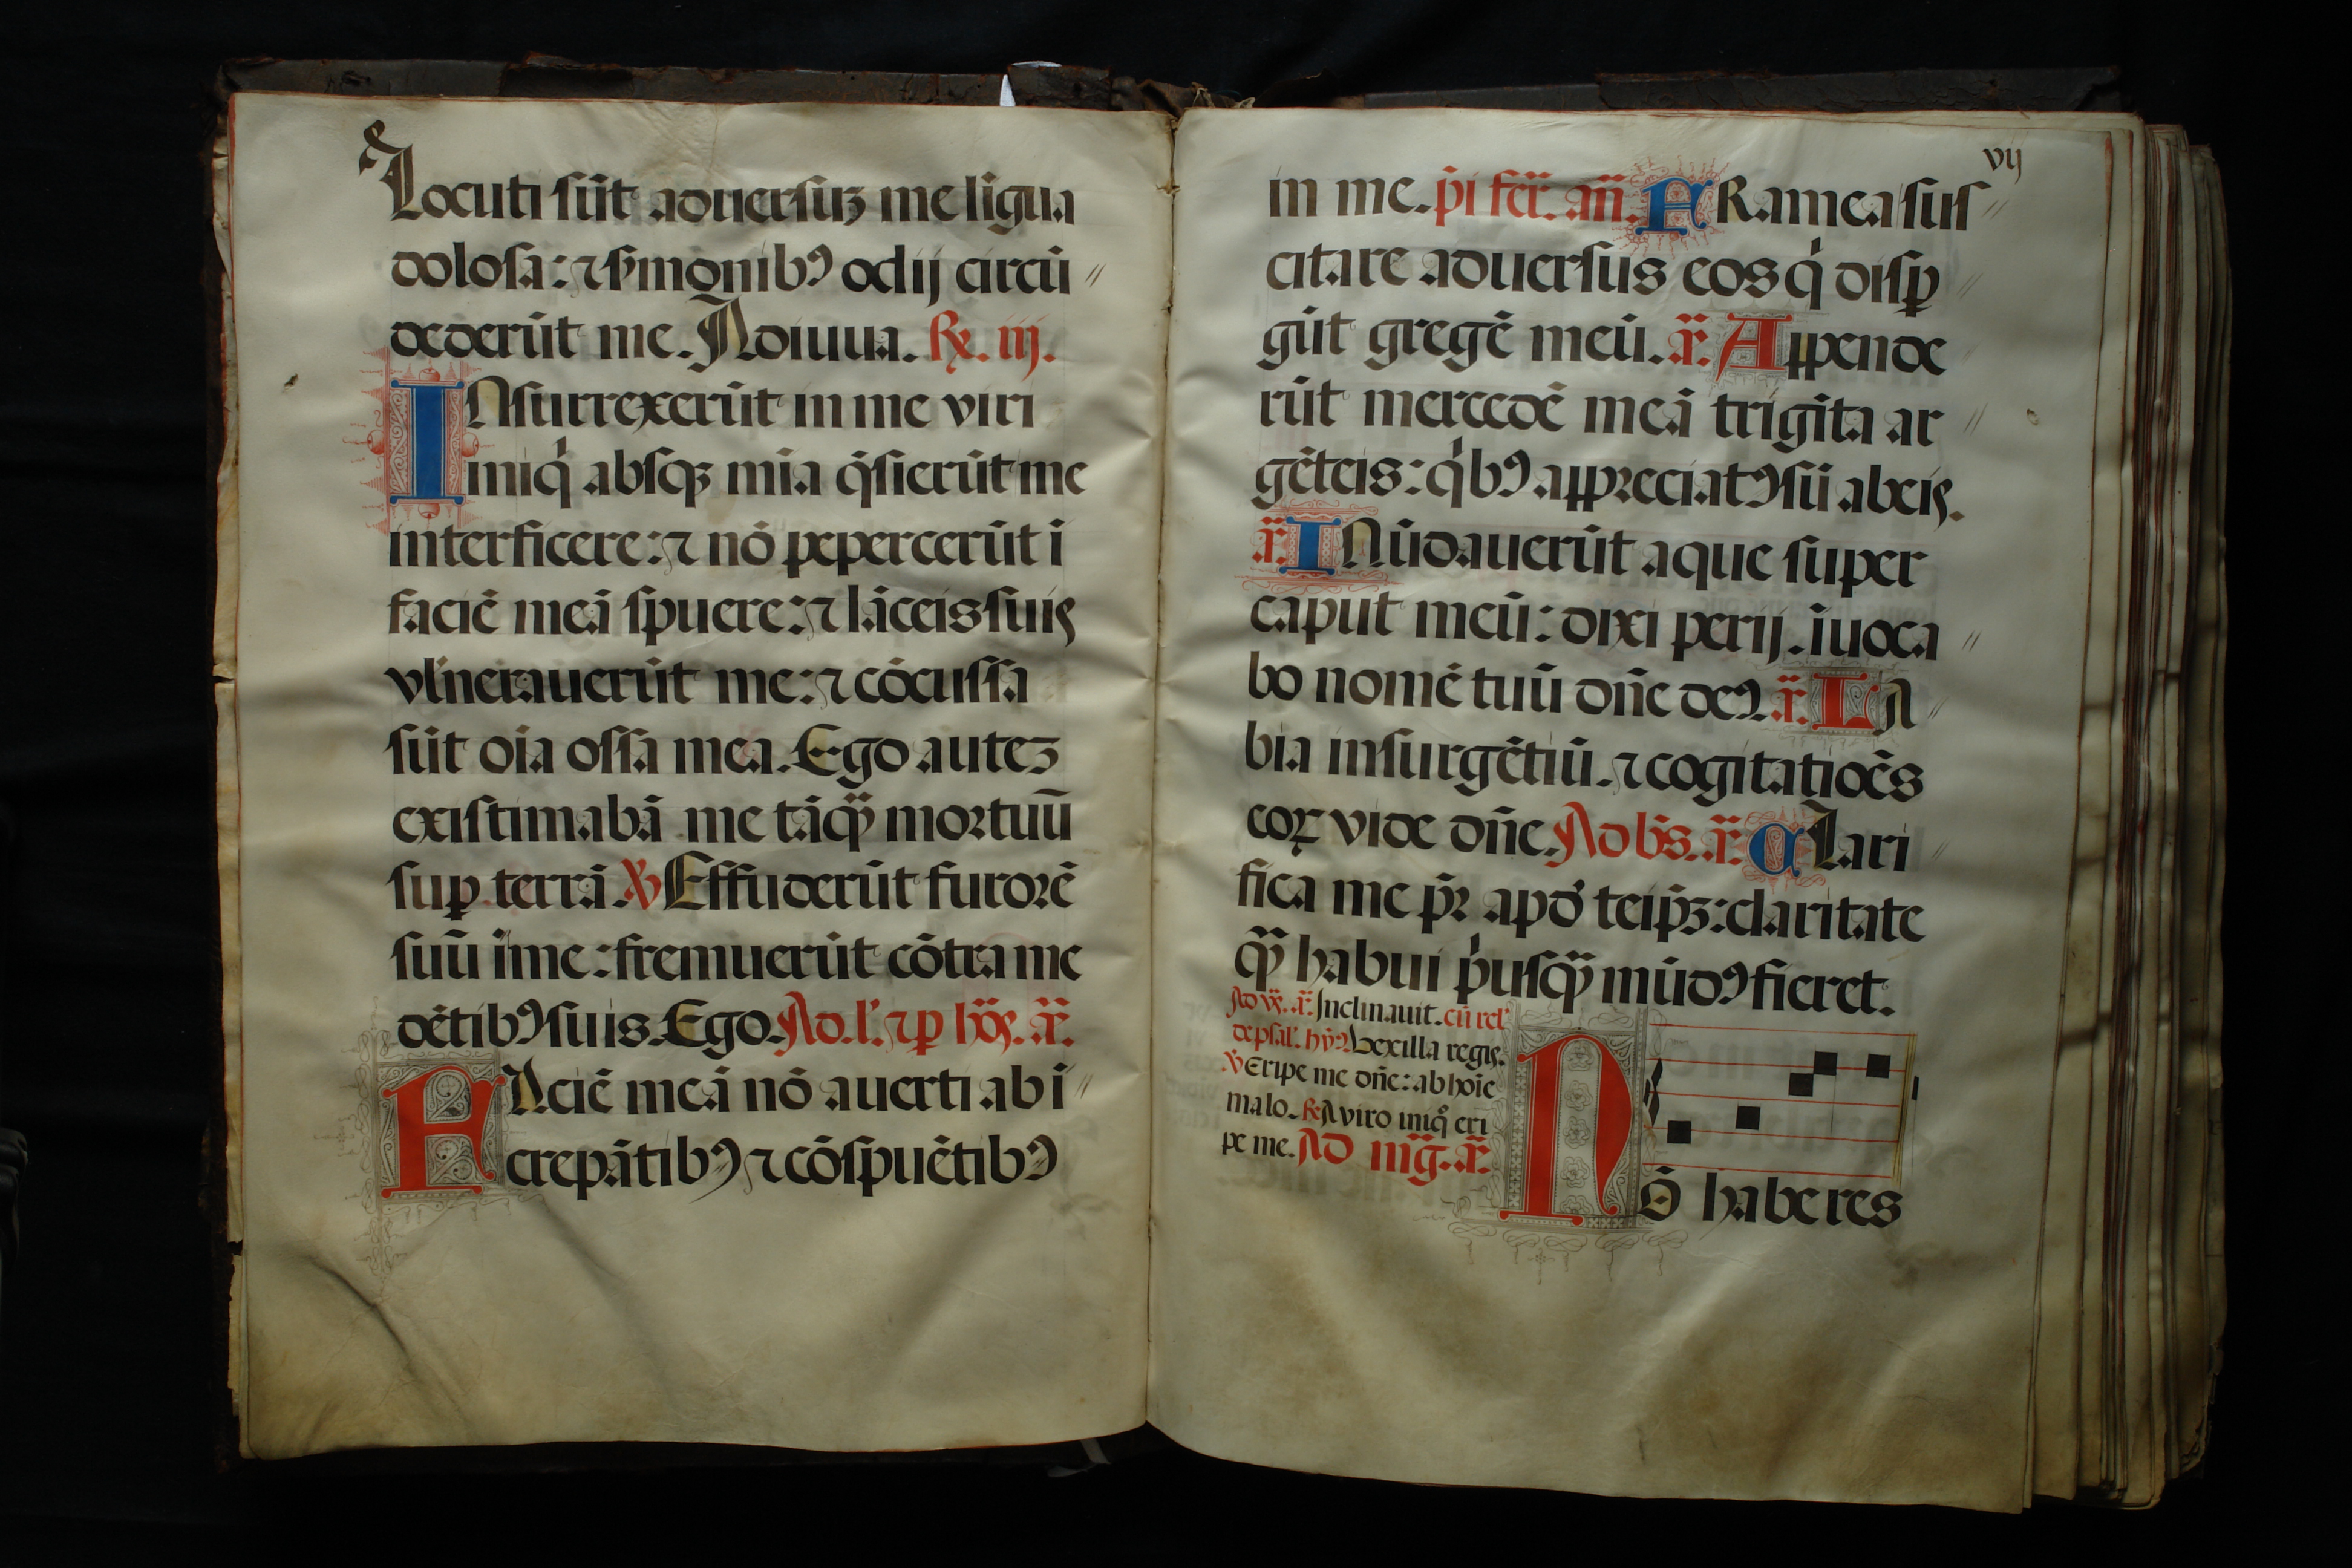 Locuti sūt aduersuʒ me līgua
dolosa: ⁊ s̄monibꝰ odij circū
dederūt me. Adiuua. R̄. iij.
INsurrexerūt in me viri
iniqͥ absqꝫ mīa q̄sierūt me
interficere: ⁊ nō pepercerūt ī
faciē meā spuere: ⁊ lāceis suis
vl̄nerauerūt me: ⁊ cōcussa
sūt oīa ossa mea. Ego auteʒ
existimabā me tāqꝫ̄ mortuū
suꝑ terrā. ℣ Effuderūt furorē
suū ī me: fremuerūt cōtra me
dētibꝰ suis. Ego. Ad. l'. ⁊ ꝑ ho᷒. ā.
FAciē meā nō auerti ab ī
crepātibꝰ ⁊ cōspuētibꝰ
vij
in me. p̄i fer̄. an̄. FRamea sus
citare aduersus eos qͥ disꝑ
gūt gregē meū. ā. Appende
rūt mercedē meā trīgīta ar
gēteis: qͥbꝰ appreciatꝰ sū ab eis.
ā. INūdauerūt aque super
caput meū: dixi perij. īuoca
bo nomē tuū dn̄e deꝰ. ā. LA
bia insurgētiū. ⁊ cogitatiōēs
eoꝝ vide dn̄e. Ad bn̄s. ā. CLari
fica me p̄r apd' teip̄ʒ: claritate
qꝫ̄ habui pͥusqꝫ̄ mūdꝰ fieret.
Ad vꝫ̄. ā. Inclinauit. cū rel'
de psal'. hyꝰ. Vexilla regis.
℣ Eripe me dn̄e: ab hoīe
malo. R̄ A viro iniqͦ eri
pe me. Ad mḡ. ā.
Nō haberes